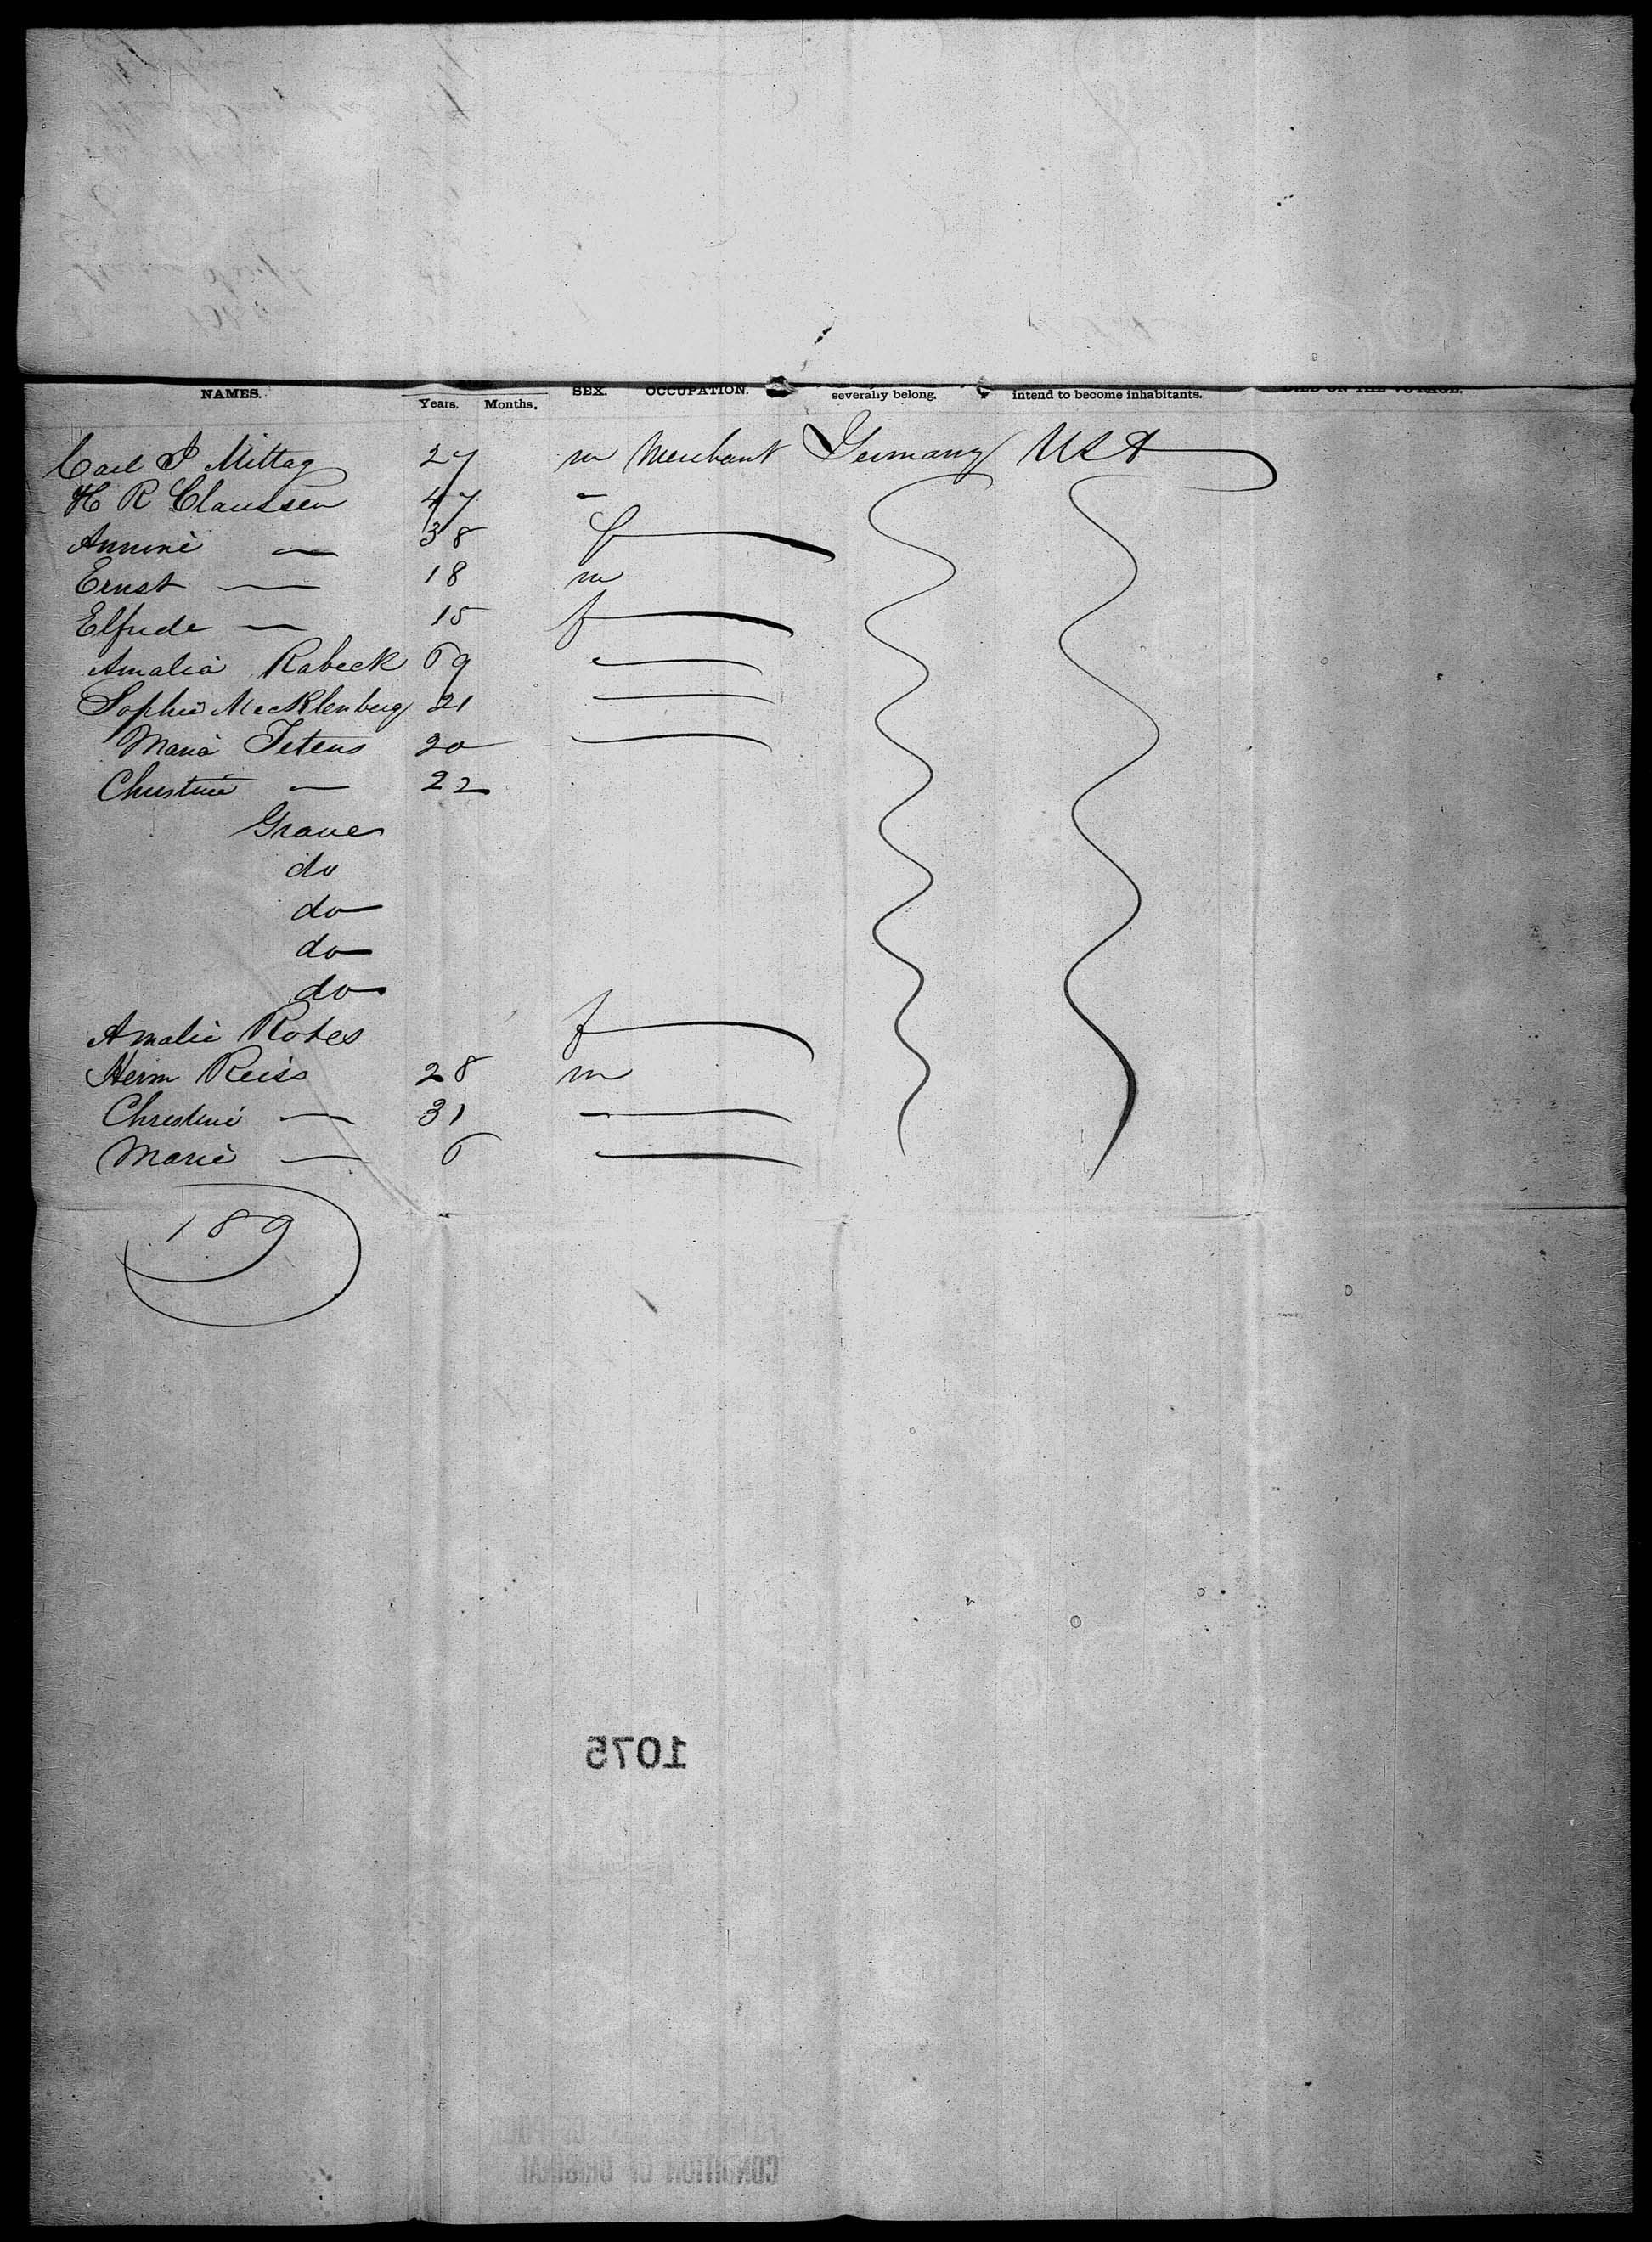 NAMES. Years. Months. SEX. OCCUPATION. severally belong. intend to become inhabitants. DIED ON THE VOYAGE.
Carl J Mittag 27 m Merchant Germany USA
H R Claussen 47 "
Annine — 38 f
Ernst — 18 m
Elfride — 15 f
Amalia Rabeck 69
Sophie Mecklenburg 21
Maria Tetens 20
Christine — 22
Graues
do
do
do
do
Amalie Rotes f
Herm Reiss 28 m
Christine — 31
Marie — 6
189
1075
CONDITION OF ORIGINAL